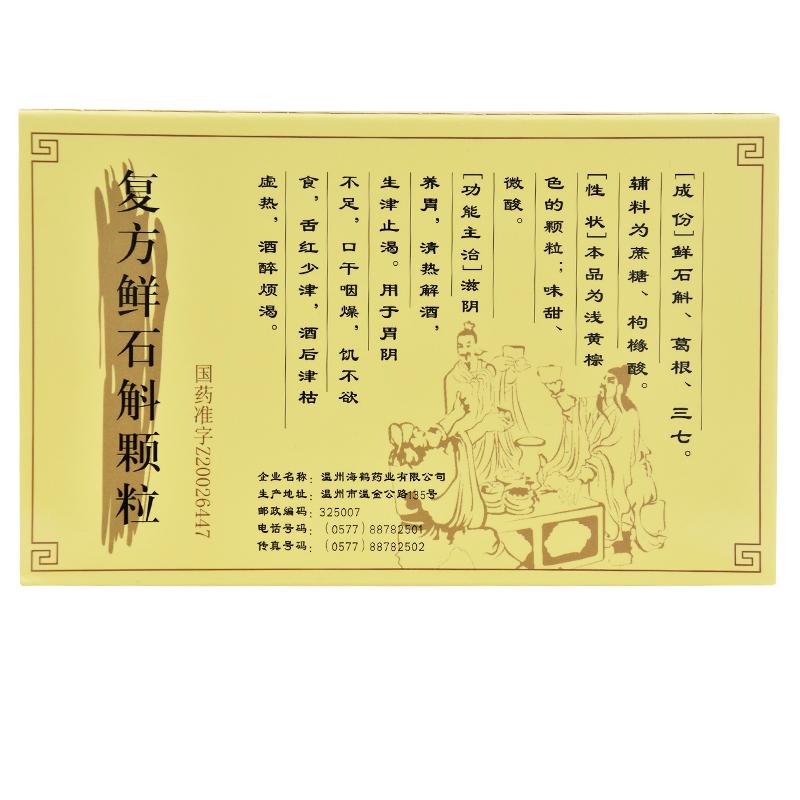 复方鲜石斛颗粒
国药准字Z20026447
[成份]鲜石斛、葛根、三七。
辅料为蔗糖、枸橼酸。
[性状]本品为浅黄棕
色的颗粒；味甜、
微酸。
[功能主治]滋阴
养胃，清热解酒，
生津止渴。用于胃阴
不足，口干咽燥，饥不欲
食，舌红少津，酒后津枯
虚热，酒醉烦渴。
企业名称：温州海鹤药业有限公司
生产地址：温州市温金公路135号
邮政编码：325007
电话号码：（0577）88782501
传真号码：（0577）88782502